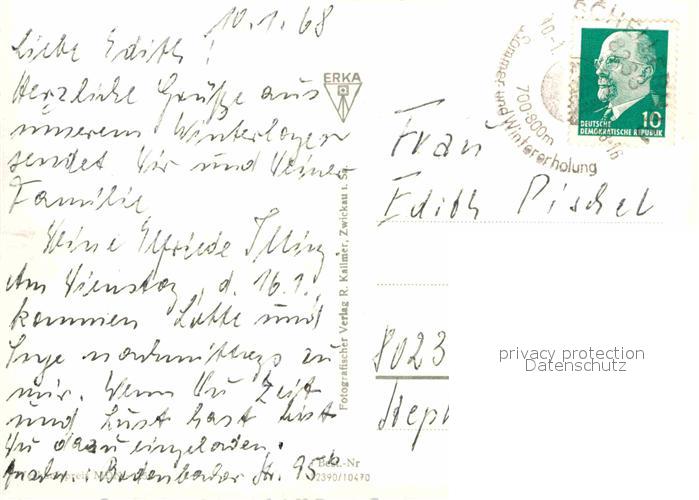 10.1.68
Liebe Edith!
Herzliche Grüße aus
unserem Winterlager
sendet Dir und Deiner
Familie
Deine Elfriede Illing.
Am Dienstag, d. 16.1.
kommen Lotte und
Inge nachmittags zu
mir. Wenn Du Zeit
und Lust hast bist
Du dazu eingeladen.
Bodenbacher Str. 95
ERKA
Fotografischer Verlag R. Kallmer, Zwickau i. Sa.
Best.-Nr
2390/10470
Sommer und Wintererholung
700-800m
10
DEUTSCHE
DEMOKRATISCHE REPUBLIK
Frau
Edith Pischel
8023
privacy protection
Datenschutz